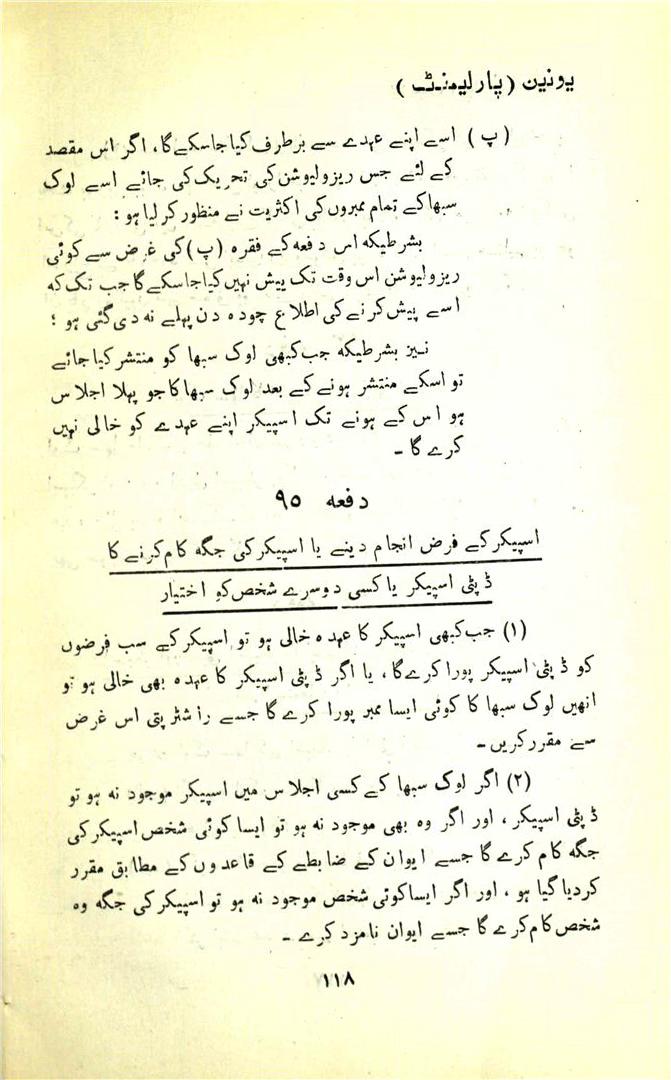 یونین (پارلیمنٹ)
(پ) اسے اپنے عہدے سے برطرف کیا جاسکے گا، اگر اس مقصد
کے لئے جس ریزولیوشن کی تحریک کی جائے اسے لوک
سبھا کے تمام ممبروں کی اکثریت نے منظور کر لیا ہو :
بشرطیکہ اس دفعہ کے فقرہ (پ) کی غرض سے کوئی
ریزولیوشن اس وقت تک پیش نہیں کیا جاسکے گا جب تک کہ
اسے پیش کرنے کی اطلاع چودہ دن پہلے نہ دی گئی ہو ؛
نیز بشرطیکہ جب کبھی لوک سبھا کو منتشر کیا جائے
تو اسکے منتشر ہونے کے بعد لوک سبھا کا جو پہلا اجلاس
ہو اس کے ہونے تک اسپیکر اپنے عہدے کو خالی نہیں
کرے گا ۔
دفعہ ۹۵
اسپیکر کے فرض انجام دینے یا اسپیکر کی جگہ کام کرنے کا
ڈپٹی اسپیکر یا کسی دوسرے شخص کو اختیار
(۱) جب کبھی اسپیکر کا عہدہ خالی ہو تو اسپیکر کے سب فرضوں
کو ڈپٹی اسپیکر پورا کرے گا، یا اگر ڈپٹی اسپیکر کا عہدہ بھی خالی ہو تو
انھیں لوک سبھا کا کوئی ایسا ممبر پورا کرے گا جسے راشٹرپتی اس غرض
سے مقرر کریں ۔
(۲) اگر لوک سبھا کے کسی اجلاس میں اسپیکر موجود نہ ہو تو
ڈپٹی اسپیکر، اور اگر وہ بھی موجود نہ ہو تو ایسا کوئی شخص اسپیکر کی
جگہ کام کرے گا جسے ایوان کے ضابطے کے قاعدوں کے مطابق مقرر
کر دیا گیا ہو، اور اگر ایسا کوئی شخص موجود نہ ہو تو اسپیکر کی جگہ وہ
شخص کام کرے گا جسے ایوان نامزد کرے ۔
۱۱۸